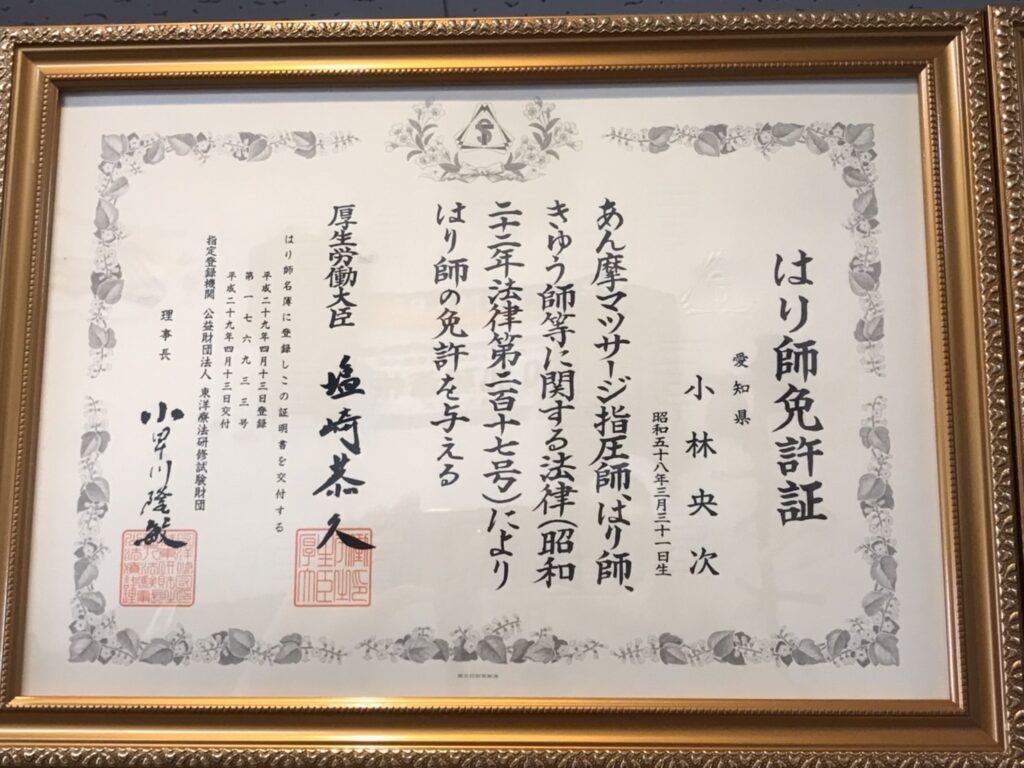 はり師免許証
愛知県
小林央次
昭和五十八年三月三十一日生
あん摩マツサージ指圧師、はり師、
きゆう師等に関する法律(昭和
二十二年法律第二百十七号)により
はり師の免許を与える
厚生労働大臣 塩崎恭久
はり師名簿に登録しこの証明書を交付する
平成二十九年四月十三日登録
第一七六九三三号
平成二十九年四月十三日交付
指定登録機関 公益財団法人 東洋療法研修試験財団
理事長 小早川隆敏